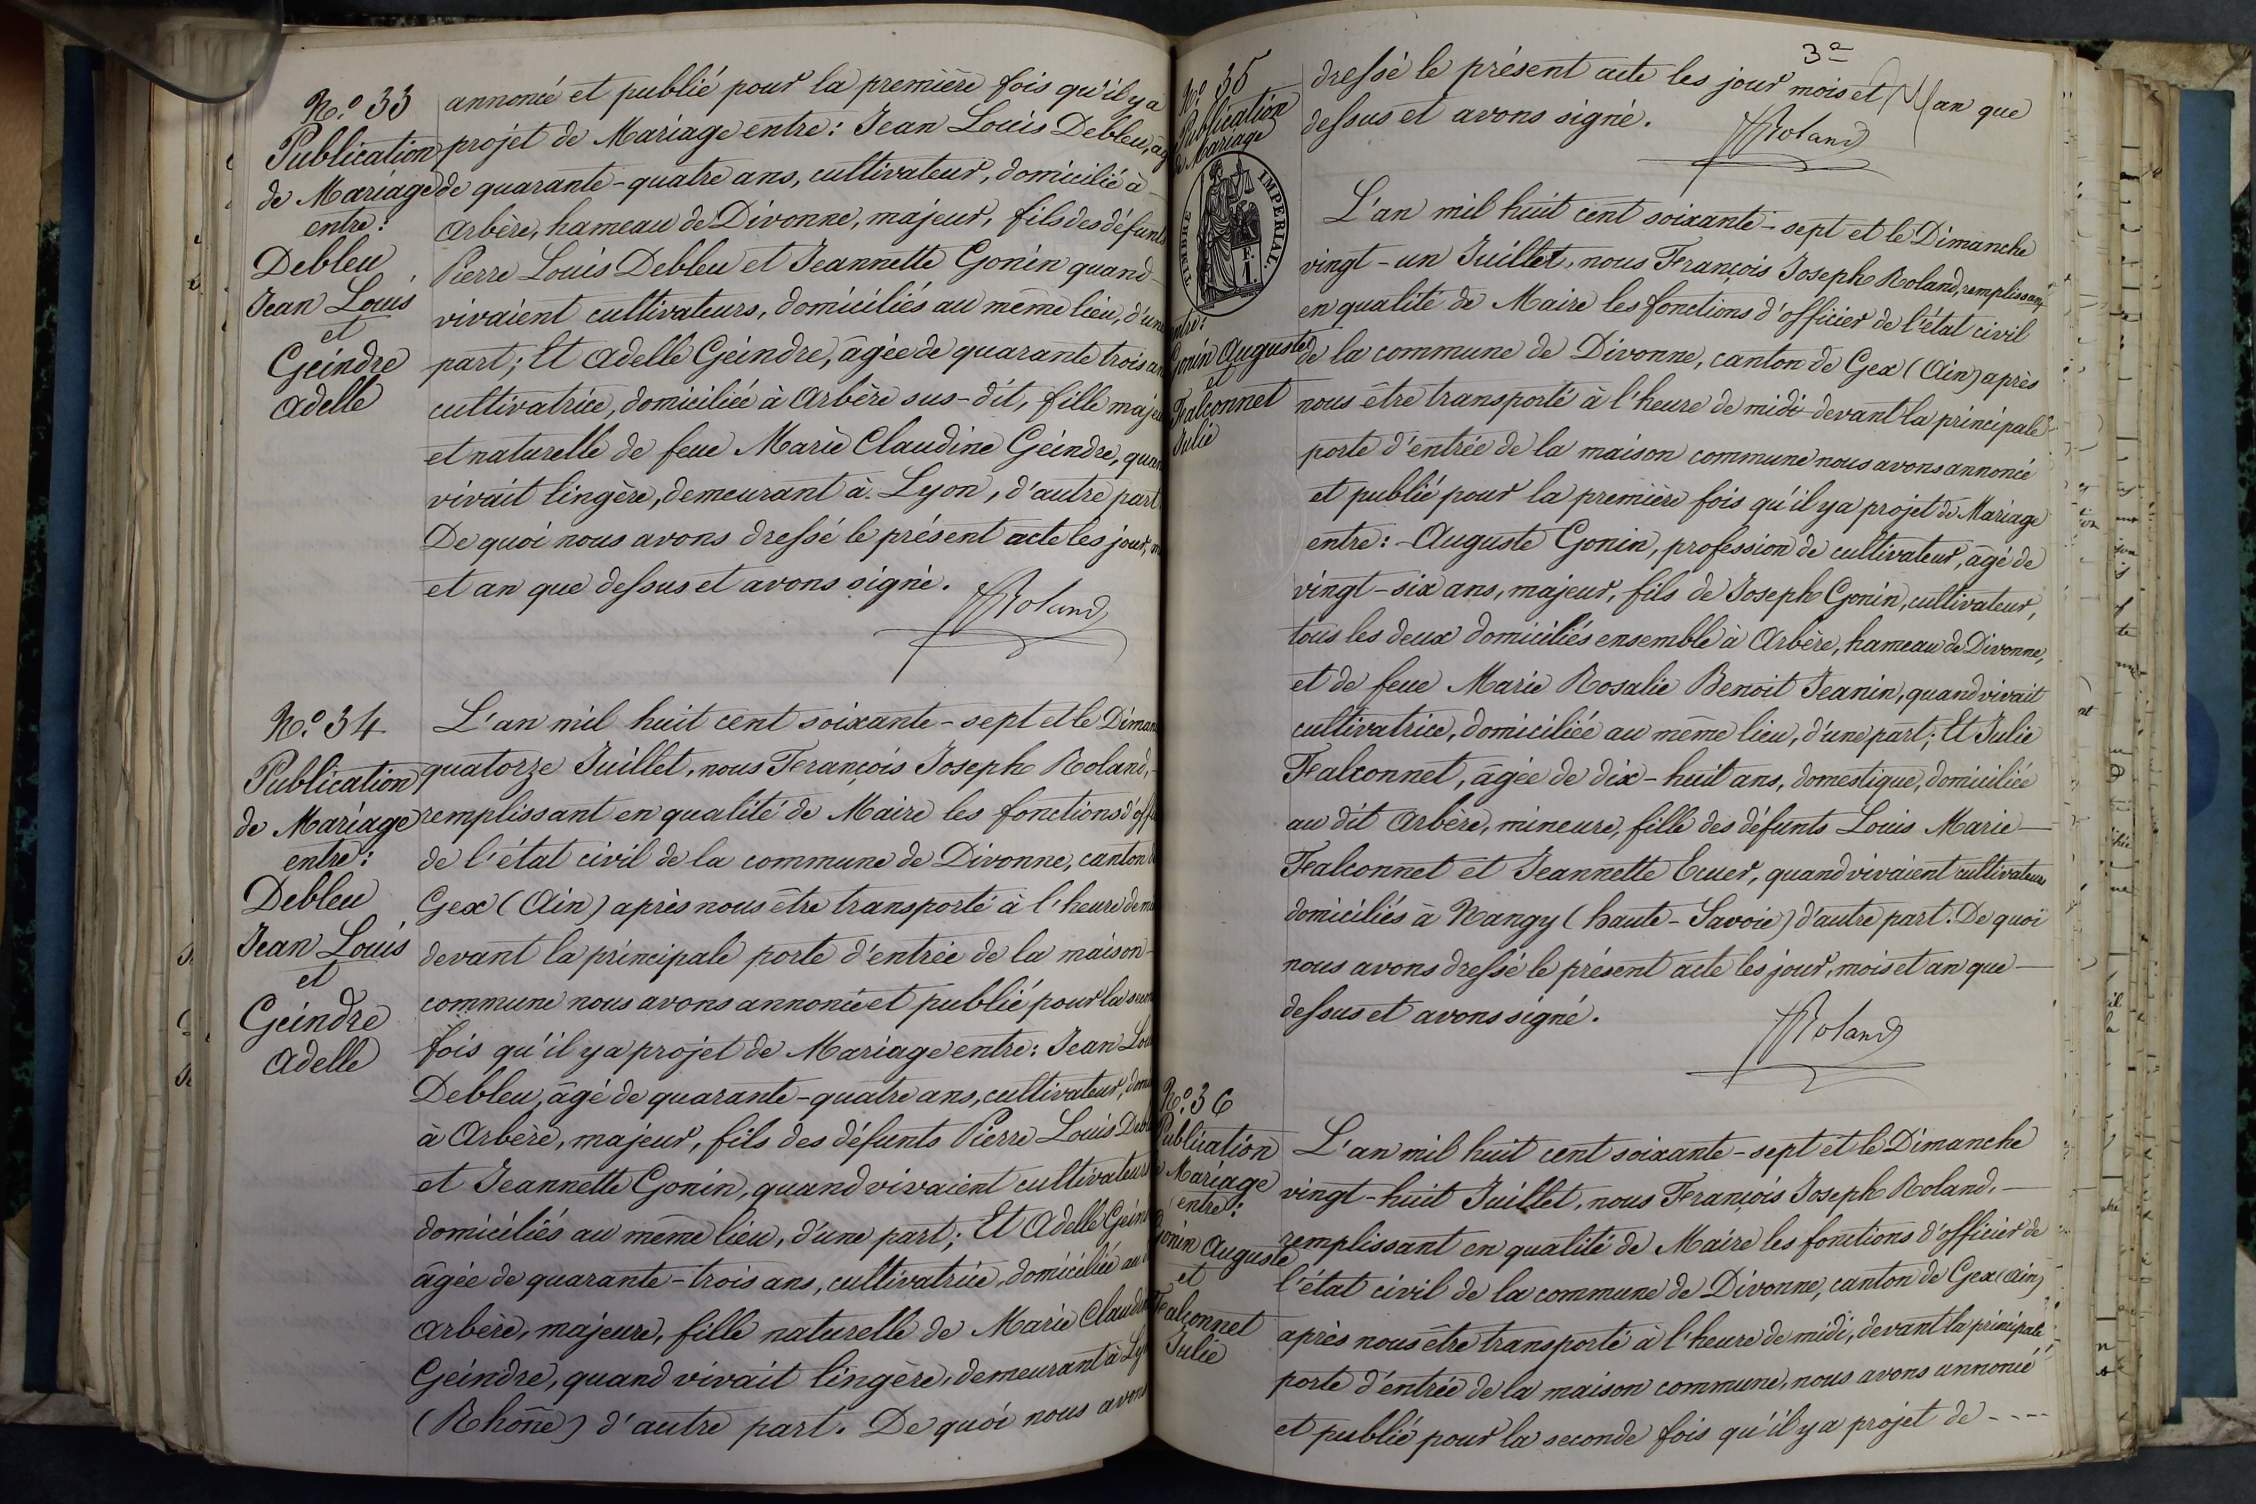 N.° 33
Publication
de Mariage
entre:
Debleu
Jean Louis
et
Geindre
Adelle
annoncé et publié pour la première fois qu'il y a
projet de Mariage entre: Jean Louis Debleu, âg
de quarante-quatre ans, cultivateur, domicilié à
Arbère, hameau de Divonne, majeur, fils des défunts
Pierre Louis Debleu et Jeannette Gonin quand
vivaient cultivateurs, domiciliés au même lieu, d'une
part; Et Adelle Geindre, âgée de quarante trois an
cultivatrice, domiciliée à Arbère sus-dit, fille maje
et naturelle de feue Marie Claudine Geindre, quan
vivait lingère, demeurant à Lyon, d'autre part
De quoi nous avons dressé le présent acte les jour, m
et an que dessus et avons signé.
Roland
N.° 34
Publication
de Mariage
entre:
Debleu
Jean Louis
et
Geindre
Adelle
L'an mil huit cent soixante-sept et le Diman
quatorze Juillet, nous François Joseph Roland,
remplissant en qualité de Maire les fonctions d'offi
de l'état civil de la commune de Divonne, canton d
Gex (Ain) après nous être transporté à l'heure de mi
devant la principale porte d'entrée de la maison
commune nous avons annoncé et publié pour la secon
fois qu'il y a projet de Mariage entre: Jean Lou
Debleu, âgé de quarante-quatre ans, cultivateur, dom
à Arbère, majeur, fils des défunts Pierre Louis Deb
et Jeannette Gonin, quand vivaient cultivateurs
domiciliés au même lieu, d'une part; Et Adelle Gein
âgée de quarante-trois ans, cultivatrice, domiciliée au
Arbère, majeure, fille naturelle de Marie Claud
Geindre, quand vivait lingère, demeurant à Ly
(Rhône) d'autre part. De quoi nous avons
3e
N.° 35
Publication
de Mariage
TIMBRE IMPERIAL.
F.
1.
entre:
Gonin Auguste
et
Falconnet
Julie
dressé le présent acte les jour mois et an que
dessus et avons signé.
Roland
L'an mil huit cent soixante-sept et le Dimanche
vingt-un Juillet, nous François Joseph Roland, remplissant
en qualité de Maire les fonctions d'officier de l'état civil
de la commune de Divonne, canton de Gex (Ain) après
nous être transporté à l'heure de midi devant la principale
porte d'entrée de la maison commune nous avons annoncé
et publié pour la première fois qu'il y a projet de Mariage
entre: Auguste Gonin, profession de cultivateur, âgé de
vingt-six ans, majeur, fils de Joseph Gonin, cultivateur,
tous les deux domiciliés ensemble à Arbère, hameau de Divonne,
et de feue Marie Rosalie Benoit Jeanin, quand vivait
cultivatrice, domiciliée au même lieu, d'une part; Et Julie
Falconnet, âgée de dix-huit ans, domestique, domiciliée
au dit Arbère, mineure, fille des défunts Louis Marie
Falconnet et Jeannette Ecuer, quand vivaient cultivateurs
domiciliés à Nangy (haute-Savoie) d'autre part. De quoi
nous avons dressé le présent acte les jour, mois et an que
dessus et avons signé.
Roland
N.° 36
Publication
Mariage
entre:
Gonin Auguste
et
Falconnet
Julie
L'an mil huit cent soixante-sept et le Dimanche
vingt-huit Juillet, nous François Joseph Roland,
remplissant en qualité de Maire les fonctions d'officier de
l'état civil de la commune de Divonne, canton de Gex (Ain)
après nous être transporté à l'heure de midi, devant la principale
porte d'entrée de la maison commune, nous avons annoncé
et publié pour la seconde fois qu'il y a projet de ----